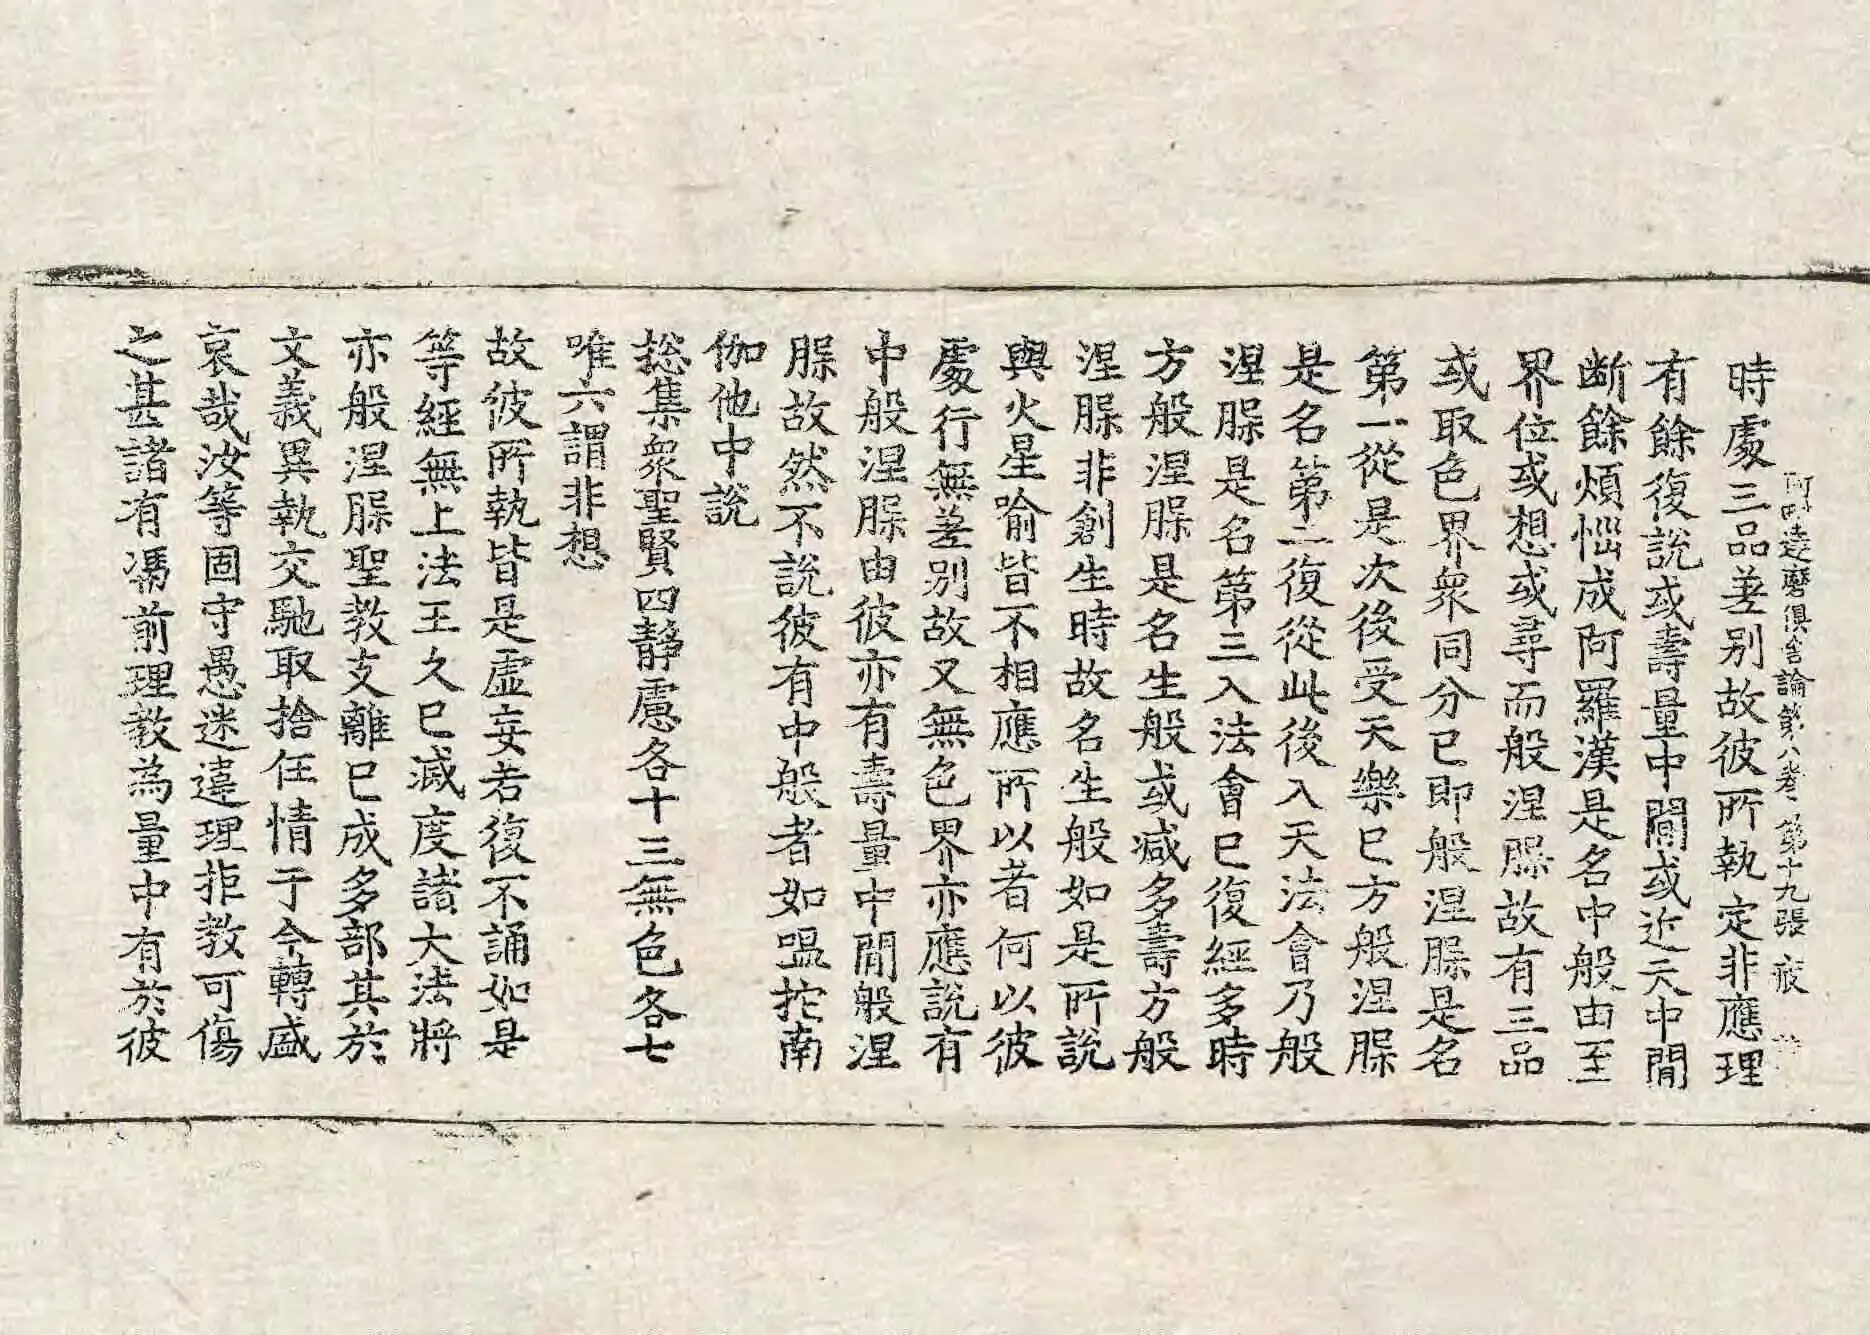 阿毗達磨俱舍論第八卷 第十九張 疲
時處三品差別故彼所執定非應理
有餘復說或壽量中間或近天中間
斷餘煩惱成阿羅漢是名中般由至
界位或想或尋而般涅脲故有三品
或取色界衆同分已即般涅脲是名
第一從是次後受天樂已方般涅脲
是名第二復從此後入天法會乃般
涅脲是名第三入法會已復經多時
方般涅脲是名生般或減多壽方般
涅脲非創生時故名生般如是所說
與火星喻皆不相應所以者何以彼
處行無差別故又無色界亦應說有
中般涅脲由彼亦有壽量中間般涅
脲故然不說彼有中般者如嗢拕南
伽他中說
揔集衆聖賢四靜慮各十三無色各七
唯六謂非想
故彼所執皆是虛妄若復不誦如是
等經無上法王久已滅度諸大法將
亦般涅脲聖教支離已成多部其於
文義異執交馳取捨任情于今轉盛
哀哉汝等固守愚迷違理拒教可傷
之甚諸有馮前理教為量中有於彼